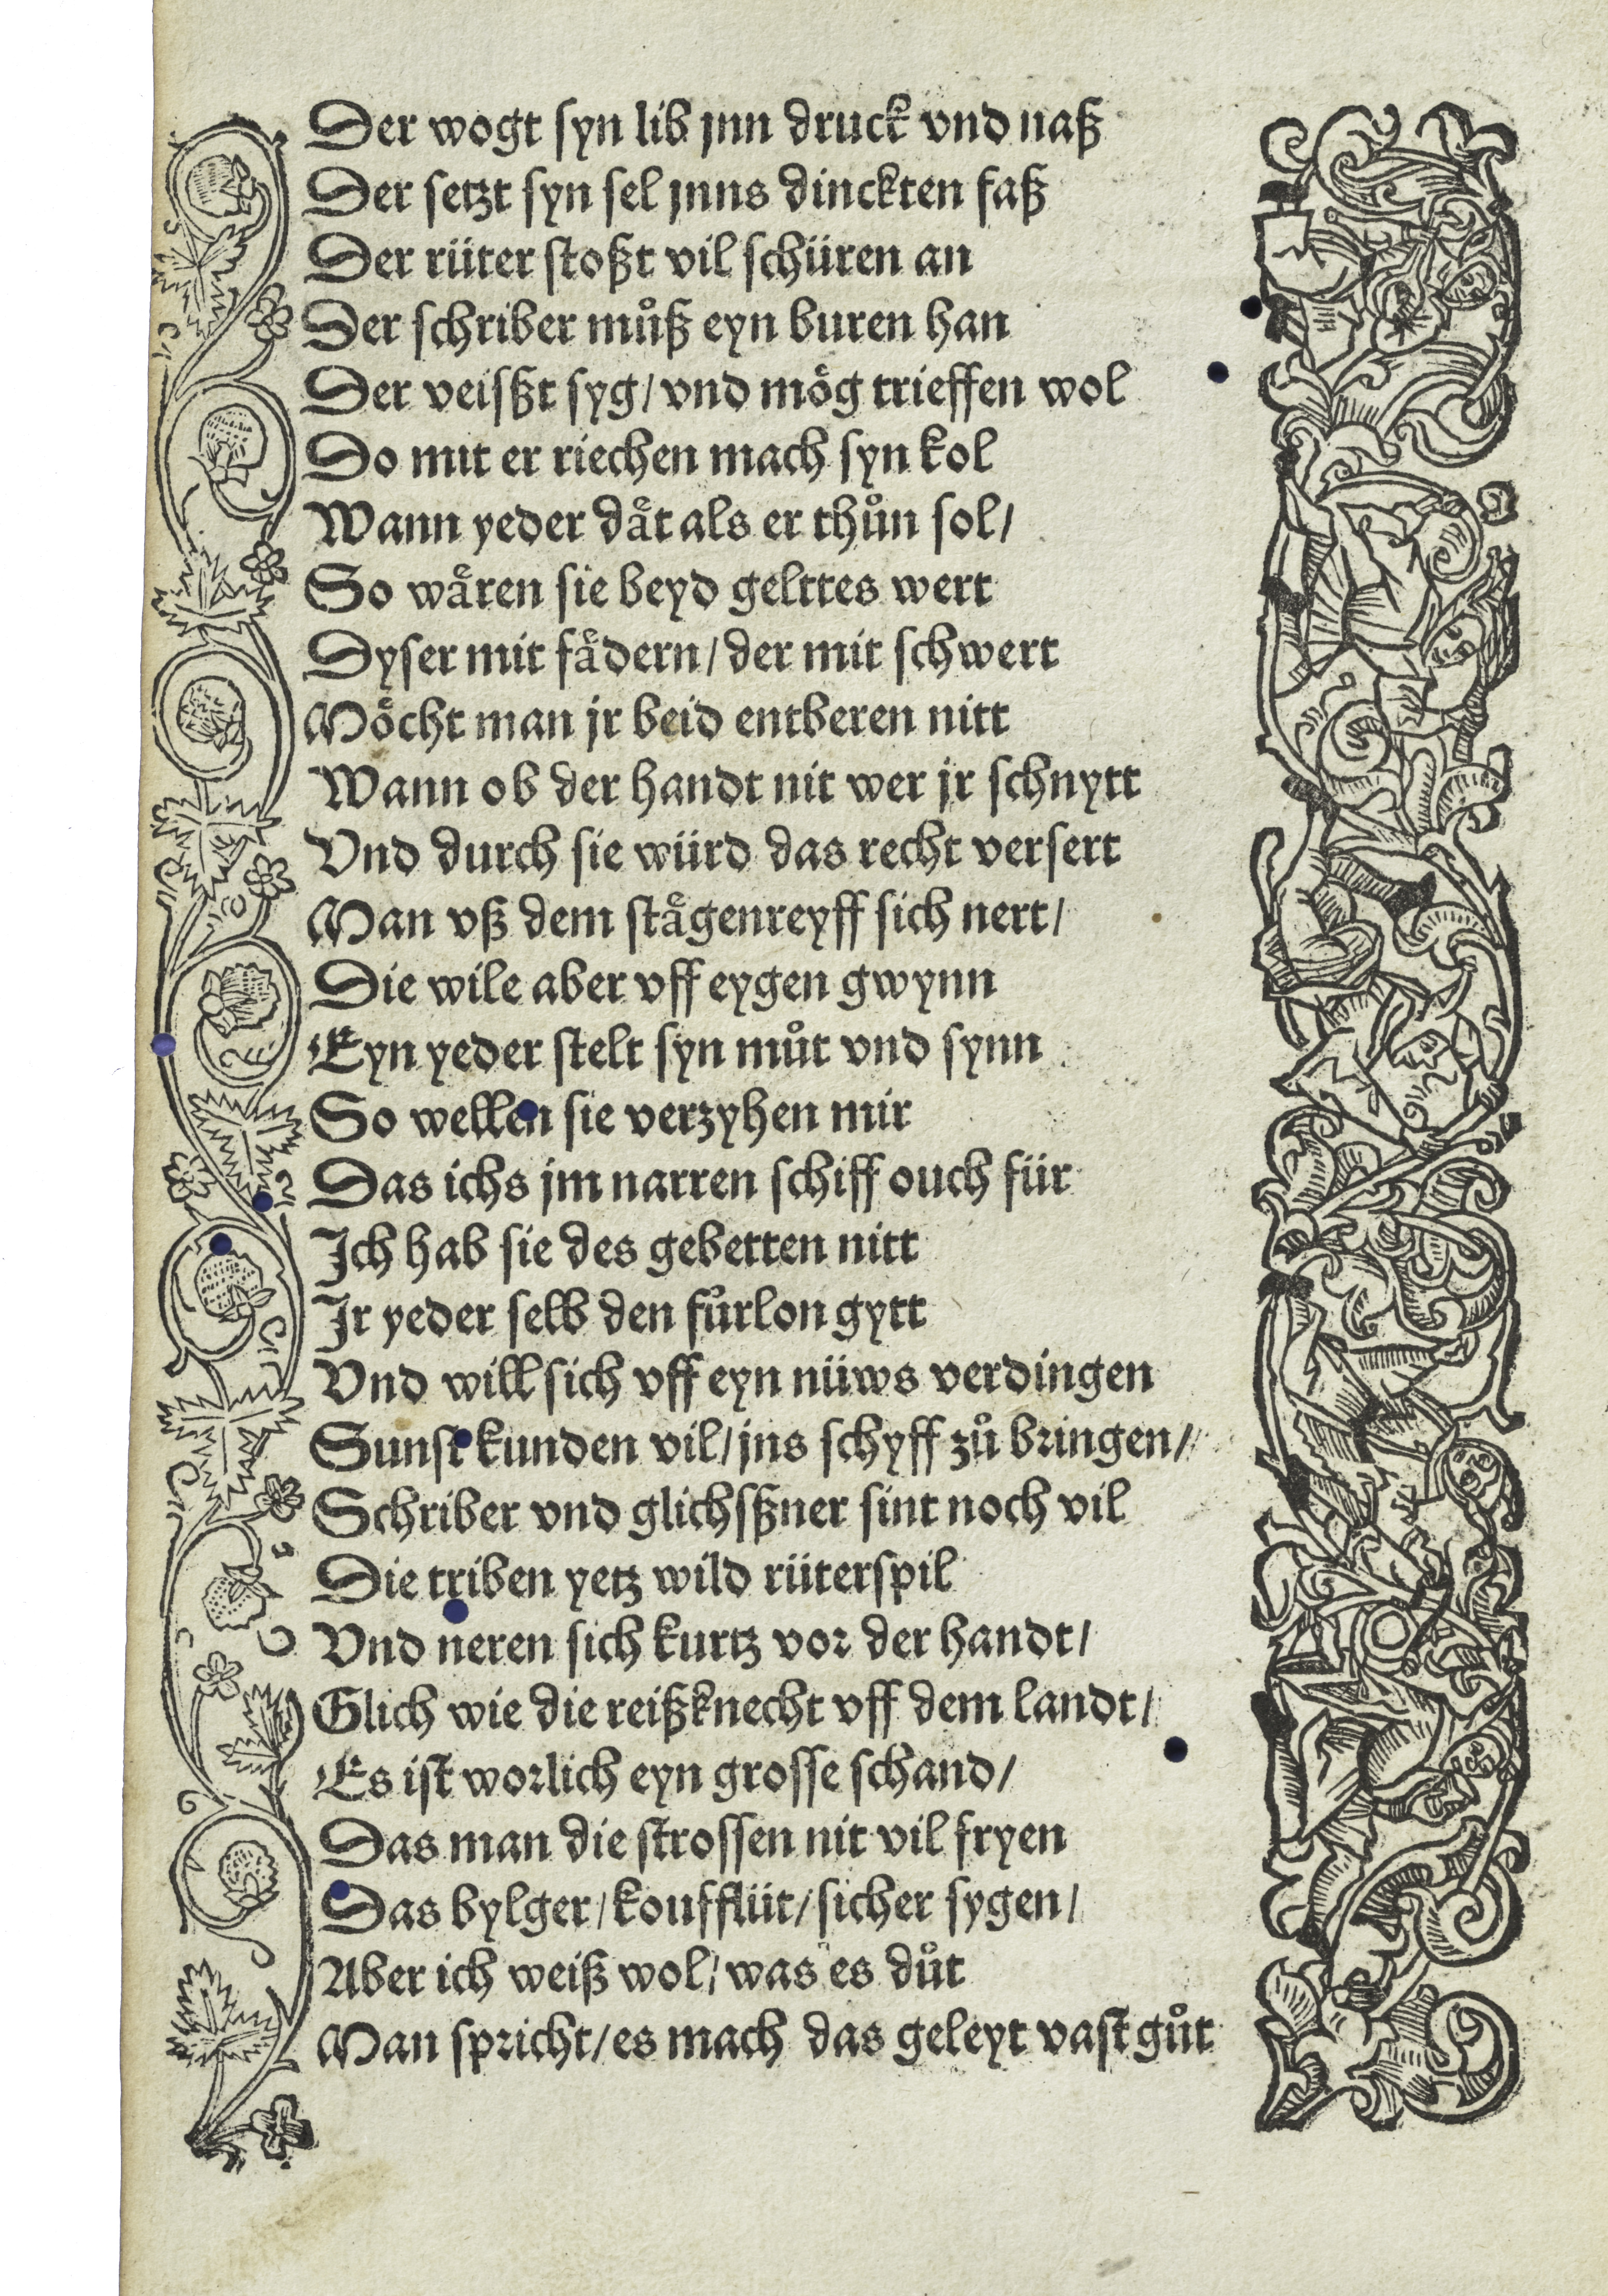 Der wogt syn lib jnn druck vnd naß
Der setzt syn sel jnns dinckten faß
Der rüter stoßt vil schüren an
Der schriber muͦß eyn buren han
Der veisßt syg/ vnd moͤg trieffen wol
Do mit er riechen mach syn kol
Wann yeder daͤt als er thuͦn sol/
So waͤren sie beyd gelttes wert
Dyser mit faͤdern/ der mit schwert
Moͤcht man jr beid entberen nitt
Wann ob der handt nit wer jr schnytt
Vnd durch sie würd das recht versert
Man vß dem staͤgenreyff sich nert/
Die wile aber vff eygen gwynn
Eyn yeder stelt syn muͦt vnd synn
So wellen sie verzyhen mir
Das ichs jm narren schiff ouch für
Ich hab sie des gebetten nitt
Ir yeder selb den fuͦrlon gytt
Vnd will sich vff eyn nüws verdingen
Sunst kunden vil/ jns schyff zuͦ bringen/
Schriber vnd glichsßner sint noch vil
Die triben yetz wild rüterspil
Vnd neren sich kurtz vor der handt/
Glich wie die reißknecht vff dem landt/
Es ist worlich eyn grosse schand/
Das man die strossen nit vil fryen
Das bylger/ koufflüt/ sicher sygen/
Aber ich weiß wol/ was es duͦt
Man spricht/ es mach das geleyt vast guͦt